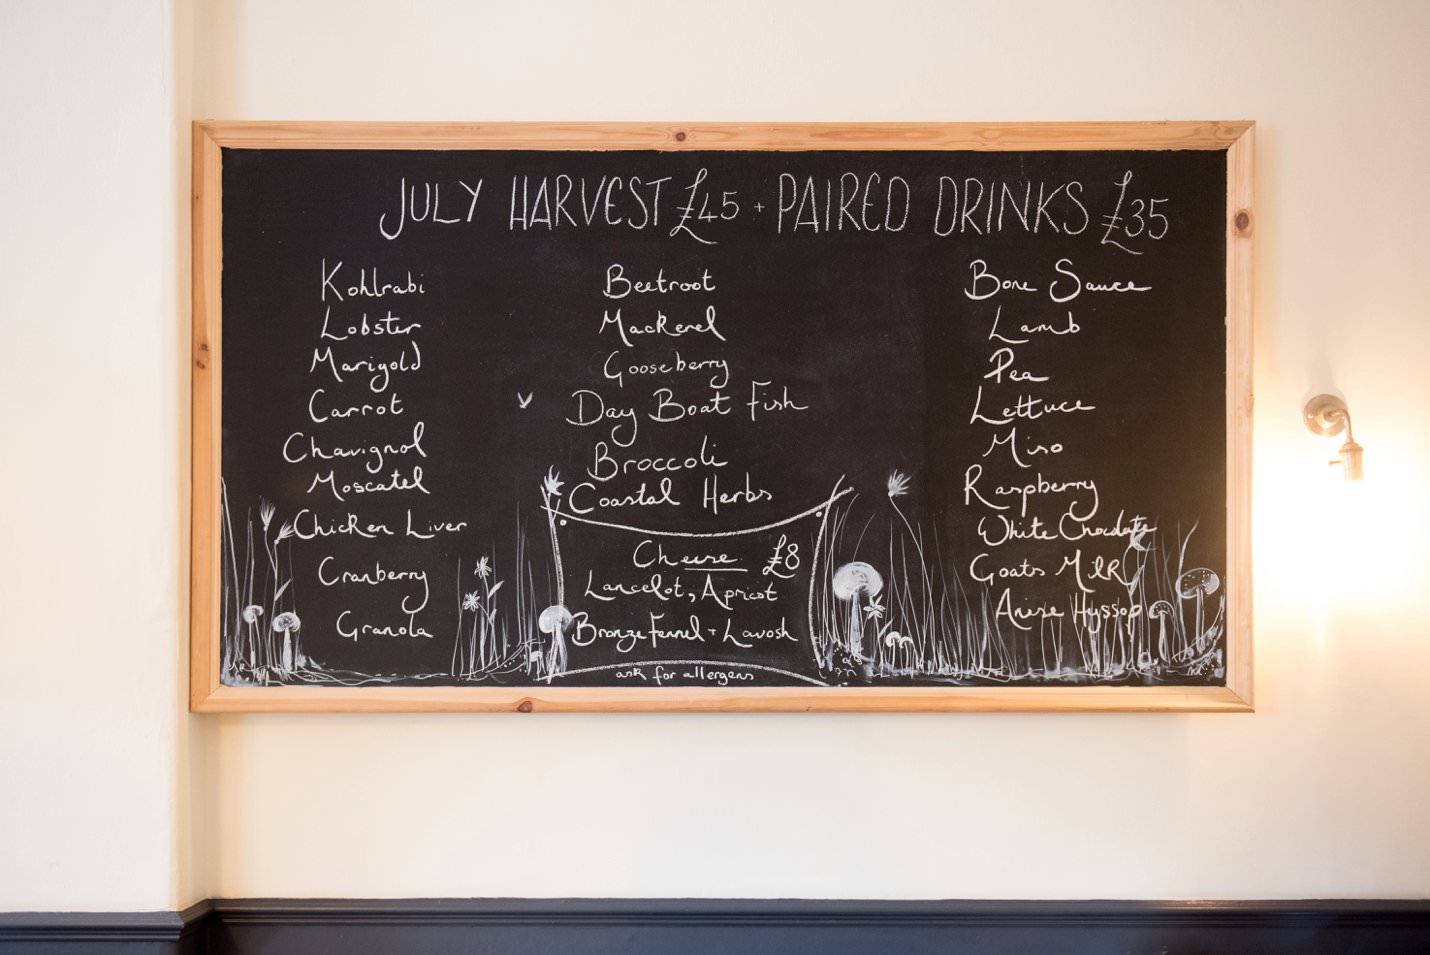 JULY HARVEST £45 + PAIRED DRINKS £35
Kohlrabi
Lobster
Marigold
Carrot
Chavignol
Moscatel
Chicken Liver
Cranberry
Granola
Beetroot
Mackerel
Gooseberry
Day Boat Fish
Broccoli
Coastal Herbs
Cheese £8
Lancelot, Apricot
Bronze Fennel + Lavosh
ask for allergens
Bone Sauce
Lamb
Pea
Lettuce
Miso
Raspberry
White Chocolate
Goats Milk
Anise Hyssop